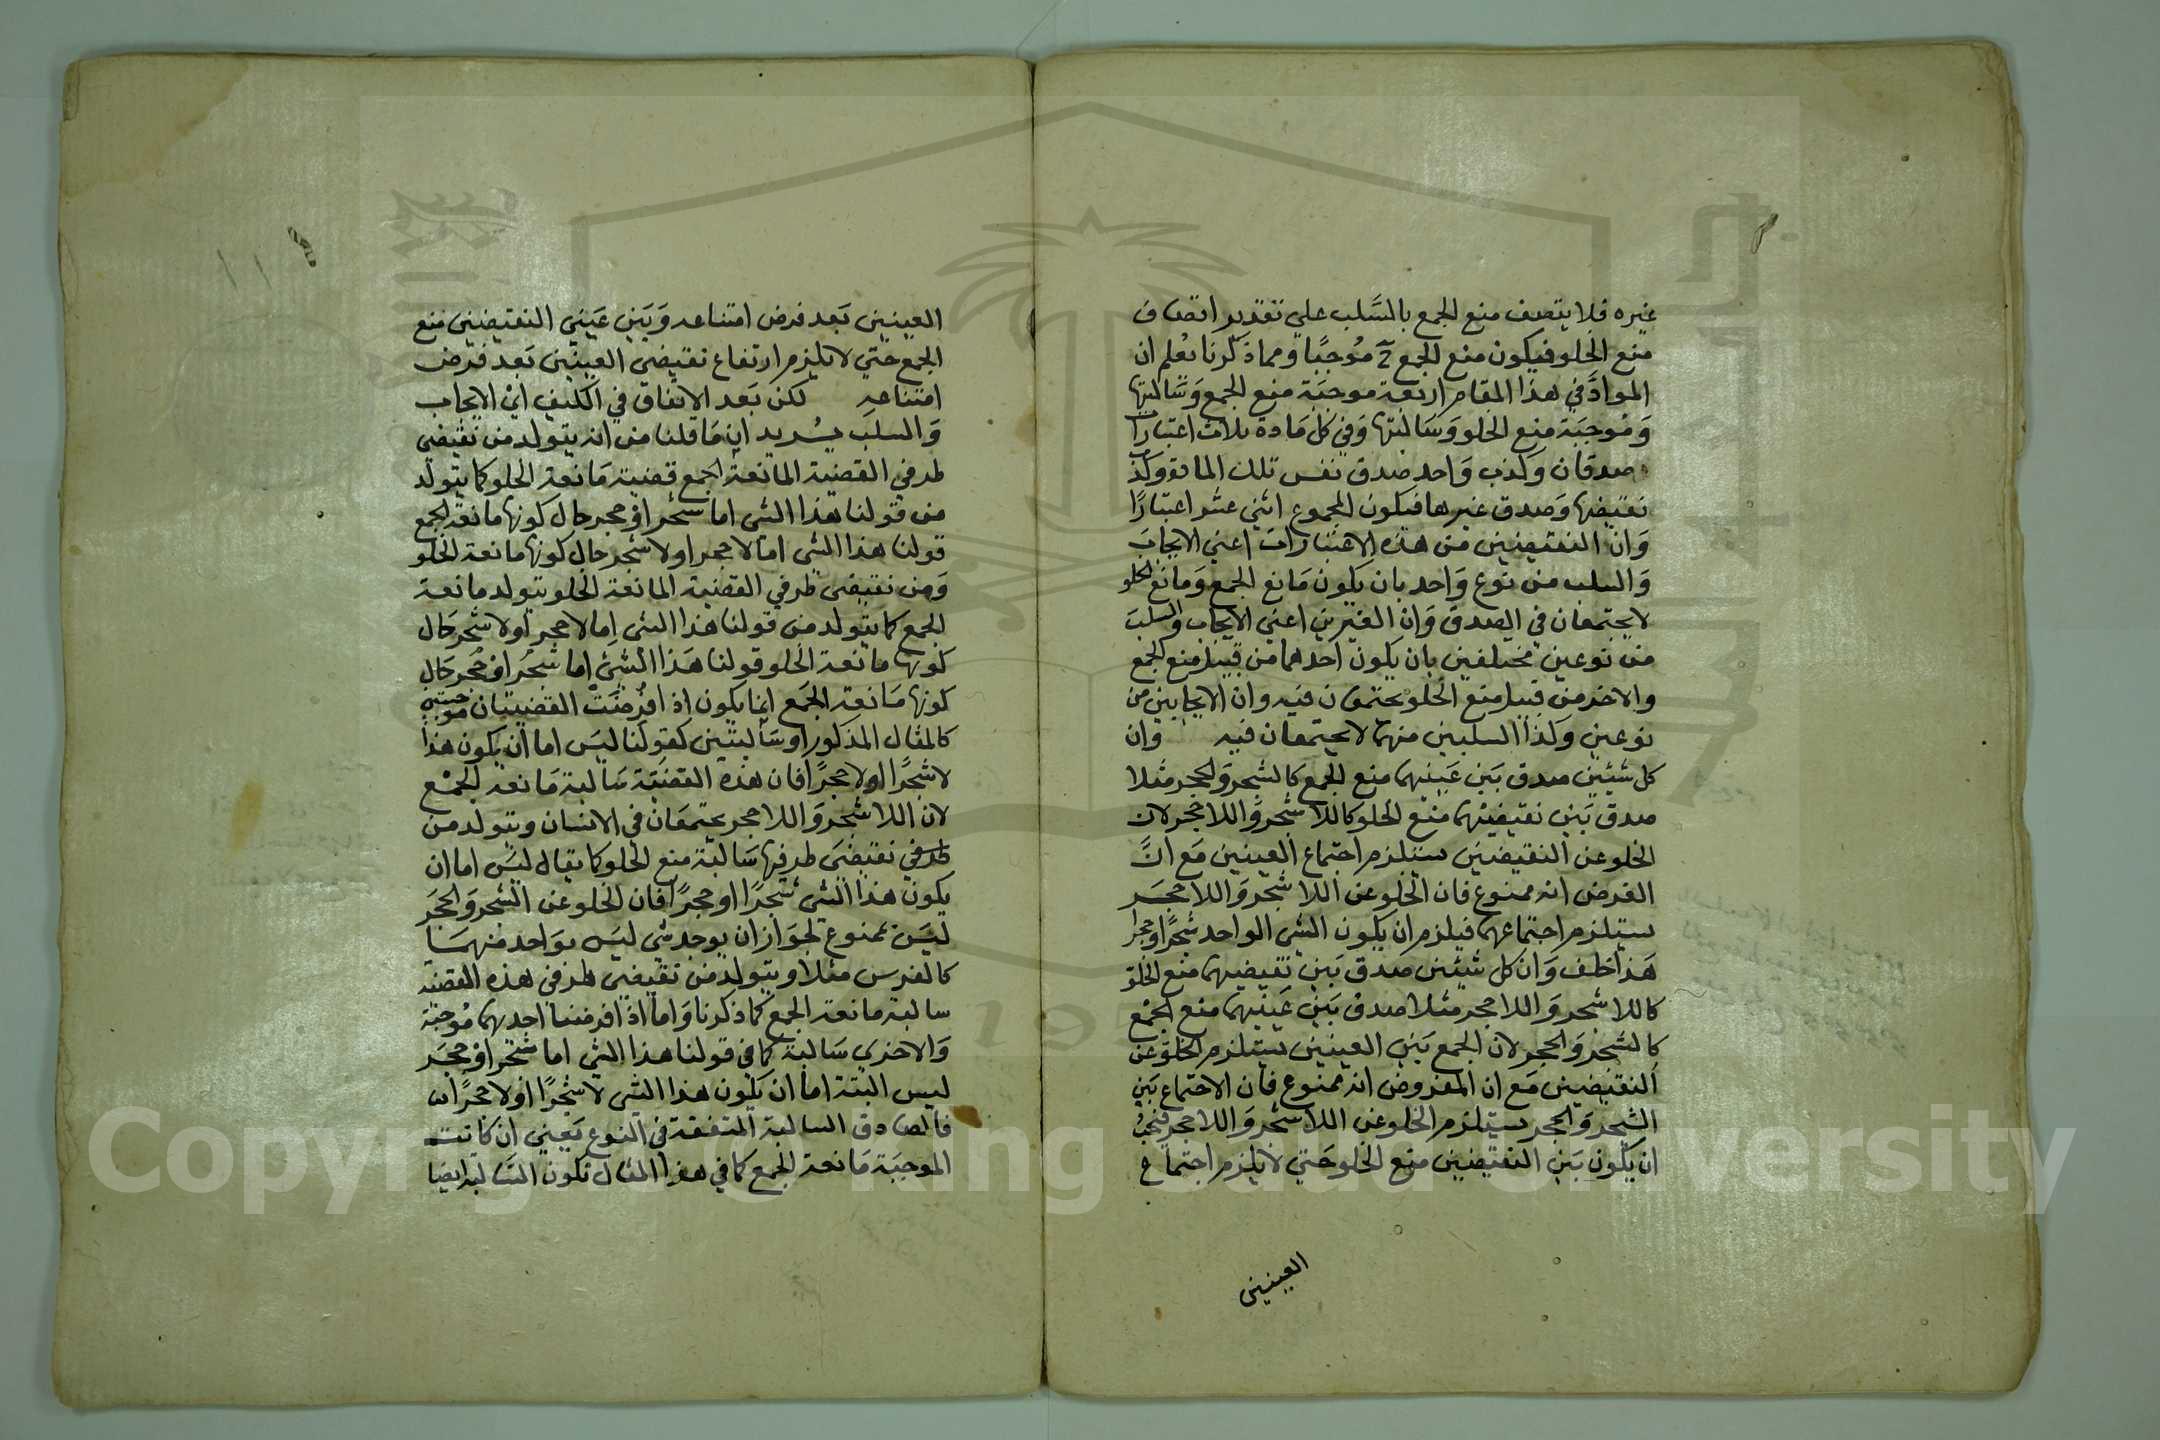 غيره فلا يتصف منع الجمع بالسَّلب علي تقدير اتصاف
منع الخلو فيكون منع الجمع ح مُوجبًا ومما ذكرنا يُعلم ان
الموادَّ في هذا المقام اربعة موجبَة منع الجمع وَسَالبتها
وَمُوجبَة منع الخلو وَسَالبتها وَفي كل مَادة ثلاث اعتبارات
صدقان وَكذب وَاحد صدق نفس تلك المادة وَكذب
نقيضها وَصدق غيرها فيكون المجموع اثني عشر اعتبارًا
وَان النقيضين من هذه الاعتبارات اعني الايجابَ
وَالسلب من نوع وَاحد بان يكون مَانع الجمع وَمانع الخلو
لا يجتمعان في الصدق وَان الغيرين اعني الايجاب والسلبَ
من نوعين مختلفين بان يكون احدهما من قبيل منع الجمع
والاخر من قبيل منع الخلو يجتمعان فيه وان الايجابين من
نوعين وَكذا السلبين منهما لا يجتمعان فيه وان
كل شيئين صدق بَين عَينيهما منع الجمع كالشجر وَالحجر مثلا
صدق بَين نقيضيْهما منع الخلو كاللا شجر وَاللا حجر لان
الخلو عن النقيضين يستلزم اجتماع العينين مَع انَّ
الفرض انه ممنوع فان الخلو عن اللا شجر وَاللا حجَر
يستلزم اجتماعهما فيلزم ان يكون الشي الواحد شجرًا وحجرا
هَذا خلف وَان كل شيئين صدق بَين نقيضيهما منع الخلوّ
كاللا شجر وَاللا حجر مثلا صدق بَين عَينيهما منع الجمْع
كالشجر وَالحجر لان الجمع بَين العينين يستلزم الخلوّ عن
النقيضين مَع ان المفروض انه ممنوع فان الاجتماع بَين
الشجر وَالحجر يستلزم الخلو عن اللا شجر وَاللا حجر فيجبُ
ان يكون بَين النقيضين منع الخلو حَتي لا يلزم اجتماع
العينين
العينين بَعد فرض امتناعه وَبَين عَيني النقيضين منع
الجمع حَتي لا يلزم ارتفاع نقيضي العينين بَعد فرض
امتناعهِ لكن بَعد الاتفاق في الكيف ايْ الايجاب
وَالسلب يُريد ان مَا قلنا من انه يتولد من نقيضي
طرفي القضية المانعة الجمع قضية مَانعة الخلو كما يتولد
من قولنا هذا الشي اما شجر اوْ حجر حال كونها مانعة الجمع
قولنا هذا الشي اما لا حجر او لا شجر حال كونها مانعة الخلو
وَمن نقيضي طرفي القضية المانعة الخلو يتولد مانعة
الجمع كما يتولد من قولنا هذا الشي اما لا حجر او لا شجر حَال
كونها مانعة الخلو قولنا هَذا الشي اما شجر اوْ حجر حَال
كونها مَانعة الجمَع انما يكون اذا فُرضَتْ القضيتان موجبتين
كالمثال المذكور او سَالبتين كقولنا ليسَ اما أن يكون هذا
لا شجرًا او لا حجرًا فان هذه القضيَة سَالبة مَانعة الجمْع
لان اللا شجر وَاللا حجر يجتمعَان في الانسان ويتولد من
نقيضَي طرفيها سَالبة منع الخلو كما يقال ليسَ اما ان
يكون هذا الشي شجرًا او حجرًا فان الخلو عن الشجر وَالحجَر
ليسَ بممنوع لجوَاز ان يوجد شي ليسَ بوَاحد منهمَا
كالفرس مثلا ويتولد من نقيضي طرفي هذه القضية
سالبة مانعة الجمع كما ذكرنا وَاما اذا فرضنا احدهما مُوجبَة
وَالاخري سَالبة كما في قولنا هذا الشي اما شجر اوْ حجَر
ليس البتة اما ان يكون هذا الشي لا شجرًا اوْ لا حجرًا
فالصادق السالبة المتفقة في النوع يَعني ان كانت
الموجبَة مَانعة الجمع كما في هذا المثال تكون السَّالبة ايضا
Copyright © King Saud University